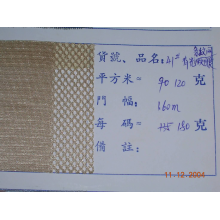 貨號、品名: 21#
平方米= 90 120 克
門 幅: 160m
每 碼= 115 180 克
備 註:
11.12.2004